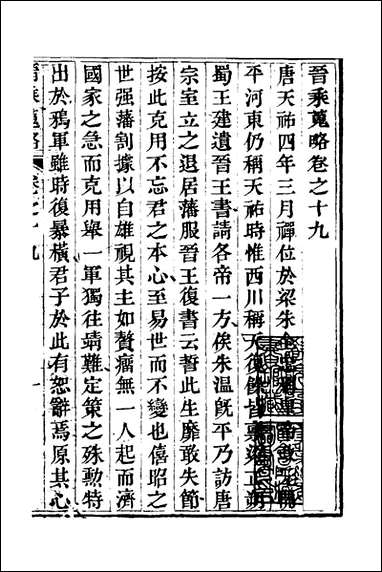 晉乘蒐略卷之十九
唐天祐四年三月禪位於梁朱
平河東仍稱天祐時惟西川稱天復餘皆稟梁正朔
蜀王建遺晉王書請各帝一方俟朱温旣平乃訪唐
宗室立之退居藩服晉王復書云誓此生靡敢失節
按此克用不忘君之本心至易世而不變也僖昭之
世强藩割據以自雄視其主如贅瘤無一人起而濟
國家之急而克用舉一軍獨往靖難定策之殊勲特
出於鴉軍雖時復暴橫君子於此有恕辭焉原其心
晉乘蒐略 卷之十九